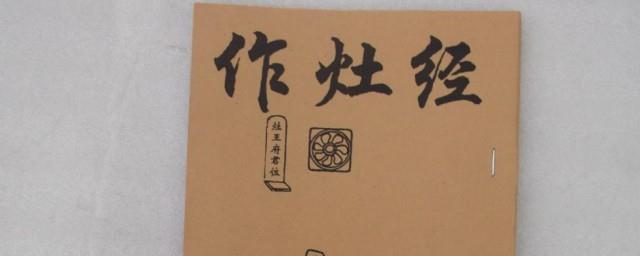 作灶经
灶王府君位